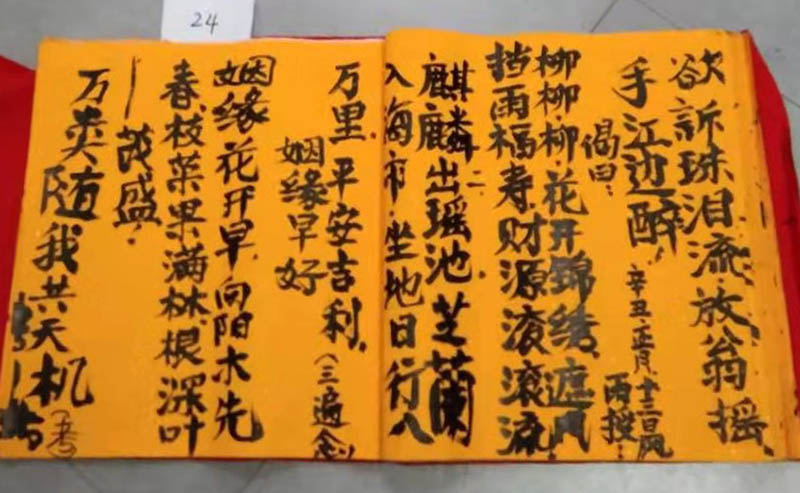 24
欲訴珠泪流.放翁摇
手江边醉.辛丑.正月十三日风
雨授:
偈曰:
柳柳.柳.花开锦绣.遮风
挡雨福寿财源滚滚流
麒麟二出瑶池.芝蘭
入海市.坐地日行八
万里.平安吉利.(三遍念)
姻缘早好
姻缘花开早.向阳木先
春.枝菜果满林.根深叶
茂盛.
万卖随我共天机